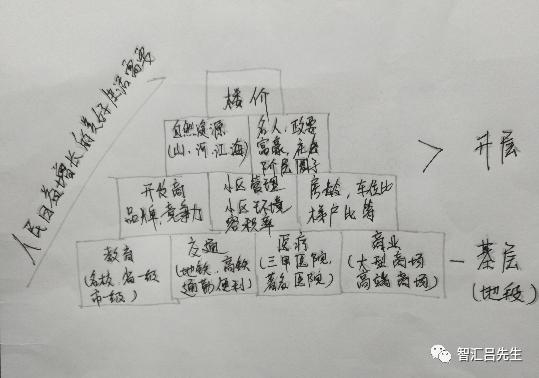 人民日益增长的美好生活需要
楼价
自然资源
(山、河、江海)
名人、政要
富豪、
阶层圈子
> 升层
开发商
品牌、竞争力
小区管理
小区环境
容积率
房龄、车位比
梯户比等
教育
(名校、省一级
市一级)
交通
(地铁、高铁
通勤便利)
医疗
(三甲医院,
著名医院)
商业
(大型商场
高端商场)
— 基层
(地段)
智汇吕先生